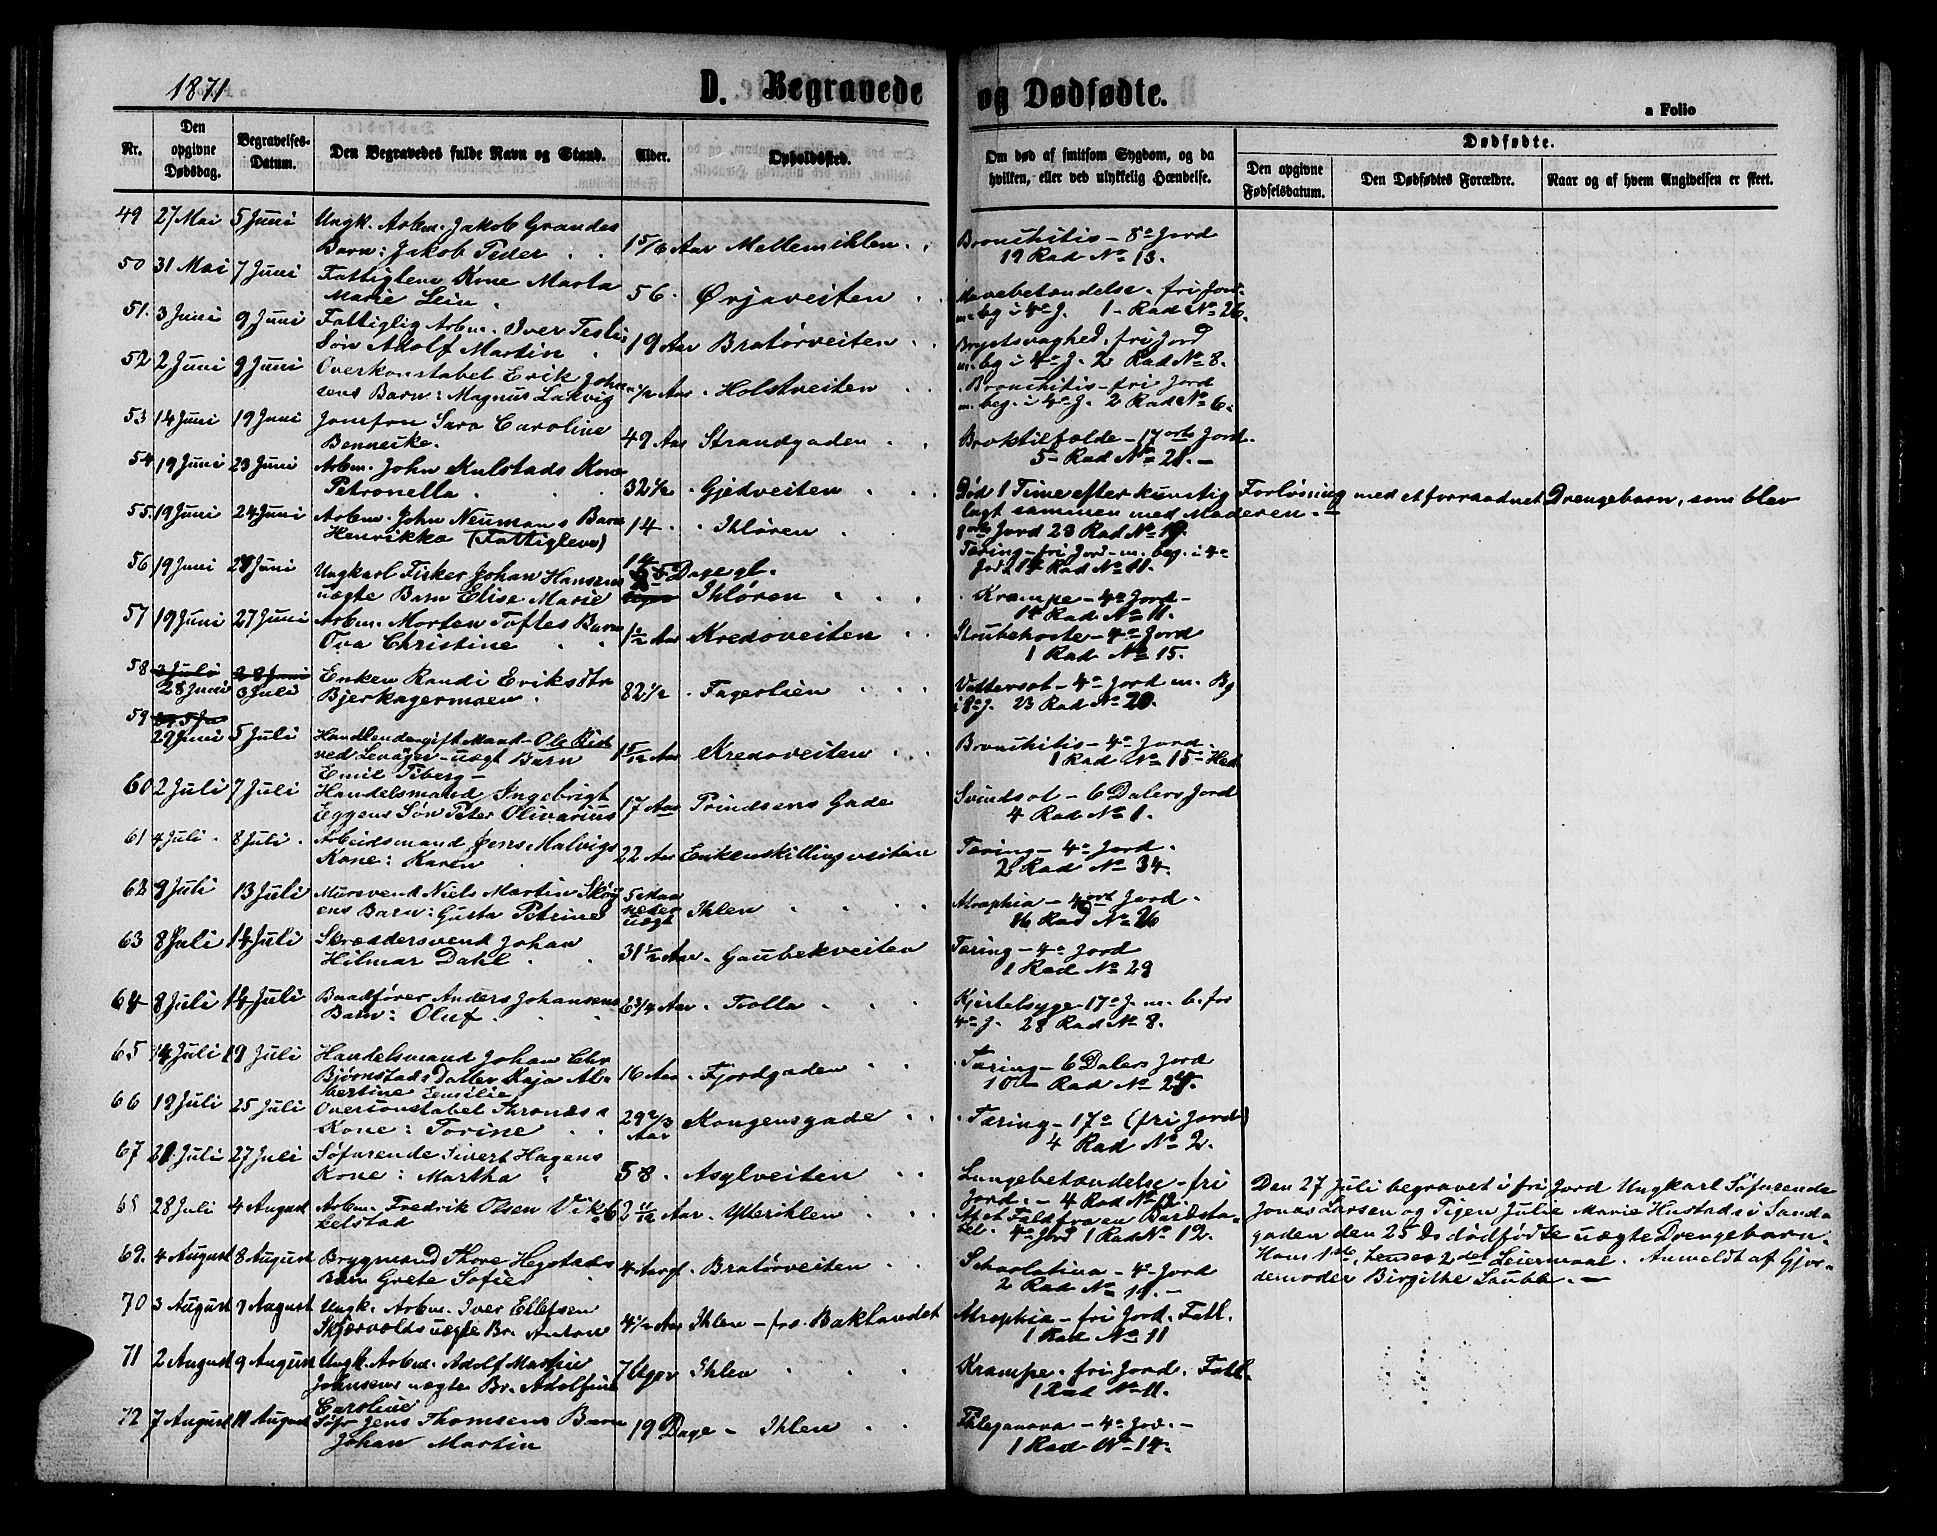 1871
D. Begravede og Dødfødte.
a Folio
Nr.
Den opgivne Dødsdag.
Begravelses-Datum.
Den Begravedes fulde Navn og Stand.
Alder.
Opholdssted.
Om død af smitsom Sygdom, og da hvilken, eller ved ulykkelig Hændelse.
Dødfødte.
Den opgivne Fødselsdatum.
Den Dødfødtes Forældre.
Naar og af hvem Angivelsen er skeet.
49 27 Mai 5 Juni Ungk. Arbm. Jakob Grandes
Barn: Jakob Peder 1 5/6 Aar Mellemihlen. Bronchitis - 8de Jord
19 Rad No 13.
50 31 Mai 7 Juni Fattiglem Kone Marta
Marie Lein 56. Ørjaveiten Mavebetændelse. fri Jord
m. bg i 4de J. 1 - Rad No 26.
51. 3 Juni 9 Juni Fattiglig Arbm. Iver
Søn Adolf Martin 19 Aar Bratørveiten Brystsvaghed. fri Jord
m. bg i 4de J. 2 Rad No 8.
52 2 Juni 9 Juni Overkonstabel Erik John-
sens Barn: Magnus Ludvig Aar. Holstveiten Bronchitis - fri Jord
m. beg. i 4de J. 2 Rad No 6.
53 14 Juni 19 Juni Jomfru Sara Caroline
Benneike. 49 Aar Strandgaden Broktilfælde - 17 orts Jord.
5 - Rad No 21. -
54 19 Juni 23 Juni Arbm. John Kulstads Kone
Petronella 32 1/2 Gjedveiten Død 1 Time efter kunstig Forløsning med et forraadnet Drengebarn, som blev
lagt sammen med Moderen. -
8 orts Jord 23 Rad No 19.
55. 19 Juni 24 Juni Arbm. John Neumans Barn
Henrikka (Fattiglem) 14. Ihløren Tæring - fri Jord - m. beg. i 4de
Jord 14 Rad No 11.
56 19 Juni 28 Juni Ungkarl Fisker Johan Hansens
uægte Barn Elise Marie 5 Dage gl. Ihløren Krampe - 4de Jord -
14 Rad No 11.
57 19 Juni 27 Juni Arbm. Morten Toftes Barn
Ova Christine 1 1/2 Aar Kredoveiten Strubehoste - 4de Jord
1 Rad No 15.
58 3 Juli 28 Juni
28 Juni 3 Juli Enken Randi Eriksdtr
Bjerkagermoen 82 1/2 Fagerlien Vattersot - 4de Jord m. Bg
i 8de J. 23 Rad No 20.
59 29 Juni 5 Juli Handlende gift Mand - Ole Kist
ved Levager - uægt Barn
Emil Tiberg - 1 5/12 Aar Kredoveiten Bronchitis - 4de Jord.
1 Rad No 15 - Hed
60 2 Juli 7 Juli Handelsmand Ingebrigt
Eggens Søn Peter Olivarius 17 Aar Prindsens Gade Svindsot - 6 Dalers Jord
4 Rad No 1.
61 4 Juli 8 Juli Arbeidsmand Jens Malvigs
Kone: Karen 22 Aar Enkenskillingsveiten Tæring - 4de Jord.
2 Rad No 34.
62 9 Juli 13 Juli Mursvend Niels Martin Skog
ens Barn: Gusta Petrine 5 Maa
neder
uægt Ihlen Atrophia - 4 ort Jord.
16 Rad No 26
63 8 Juli 14 Juli Skræddersvend Johan
Hilmar Dahl 31 1/2 Aar. Gaubekveiten Tæring - 4de Jord
1 Rad No 29
64 8 Juli 14 Juli Baadfører Anders Johansens
Barn: Oluf 6 3/4 Aar. Trolla Kjertelsyge - 17de J. m. b. for
4de J. 28 Rad No 8.
65 14 Juli 19 Juli Handelsmand Johan Chr
Bjørnstads Datter Kaja Al-
bertine Emilie 16 Aar. Fjordgaden Tæring - 6 Dalers Jord
10 - Rad No 27.
66 19 Juli 25 Juli Overconstabel Thronæss
Kone: Torine 29 2/3
Aar Kongensgade Tæring - 17de (fri Jord)
4 Rad No 2.
67 21 Juli 27 Juli Søfarende Sivert Hagens
Kone: Martha 58. Asylveiten Lungebetændelse - fri
Jord. - 4 Rad No 12.
68 28 Juli 4 August Arbm. Fredrik Olsen Vik
kelstad 62 11/12 Aar. Ytterihlen Af et Fald fra en Bordsta-
bel. 4de Jord 1 Rad No 12.
69. 4 August 8 August Brygmand Thore Hegstads
Barn Grete Sofie 4 Aar gl. Bratørveiten Scharlatina - 4de Jord
2 Rad No 11. -
70 3 August 9 August Ungk. Arbm. Iver Ellefsen
Skjervolds uægte Br. Anton 4 1/2 Aar Ihlen - fra Baklandet Atrophia - fri Jord. Fatl.
1 Rad No 11
71 2 August 9 August Ungk. Arbm. Adolf Martin
Johnsens uægte Br. Adolfine
Caroline 7 Uger Ihlen Krampe. fri Jord. Fatl.
1 Rad No 11.
72 7 August 11 August Søfr Jens Thomsens Barn
Johan Martin 19 Dage - Ihlen - 4de Jord. -
1 Rad No 14.
Den 27 Juli begravet i fri Jord Ungkarl Søfarende
Jonas Larsen og Pigen Julie Marie Hustads i Sand-
gaden den 25 Ds dødfødte uægte Drengebarn.
Hans 1ste, hendes 2det Leiermaal. Anmeldt af Gjor-
demoder Birgithe Saubb. -